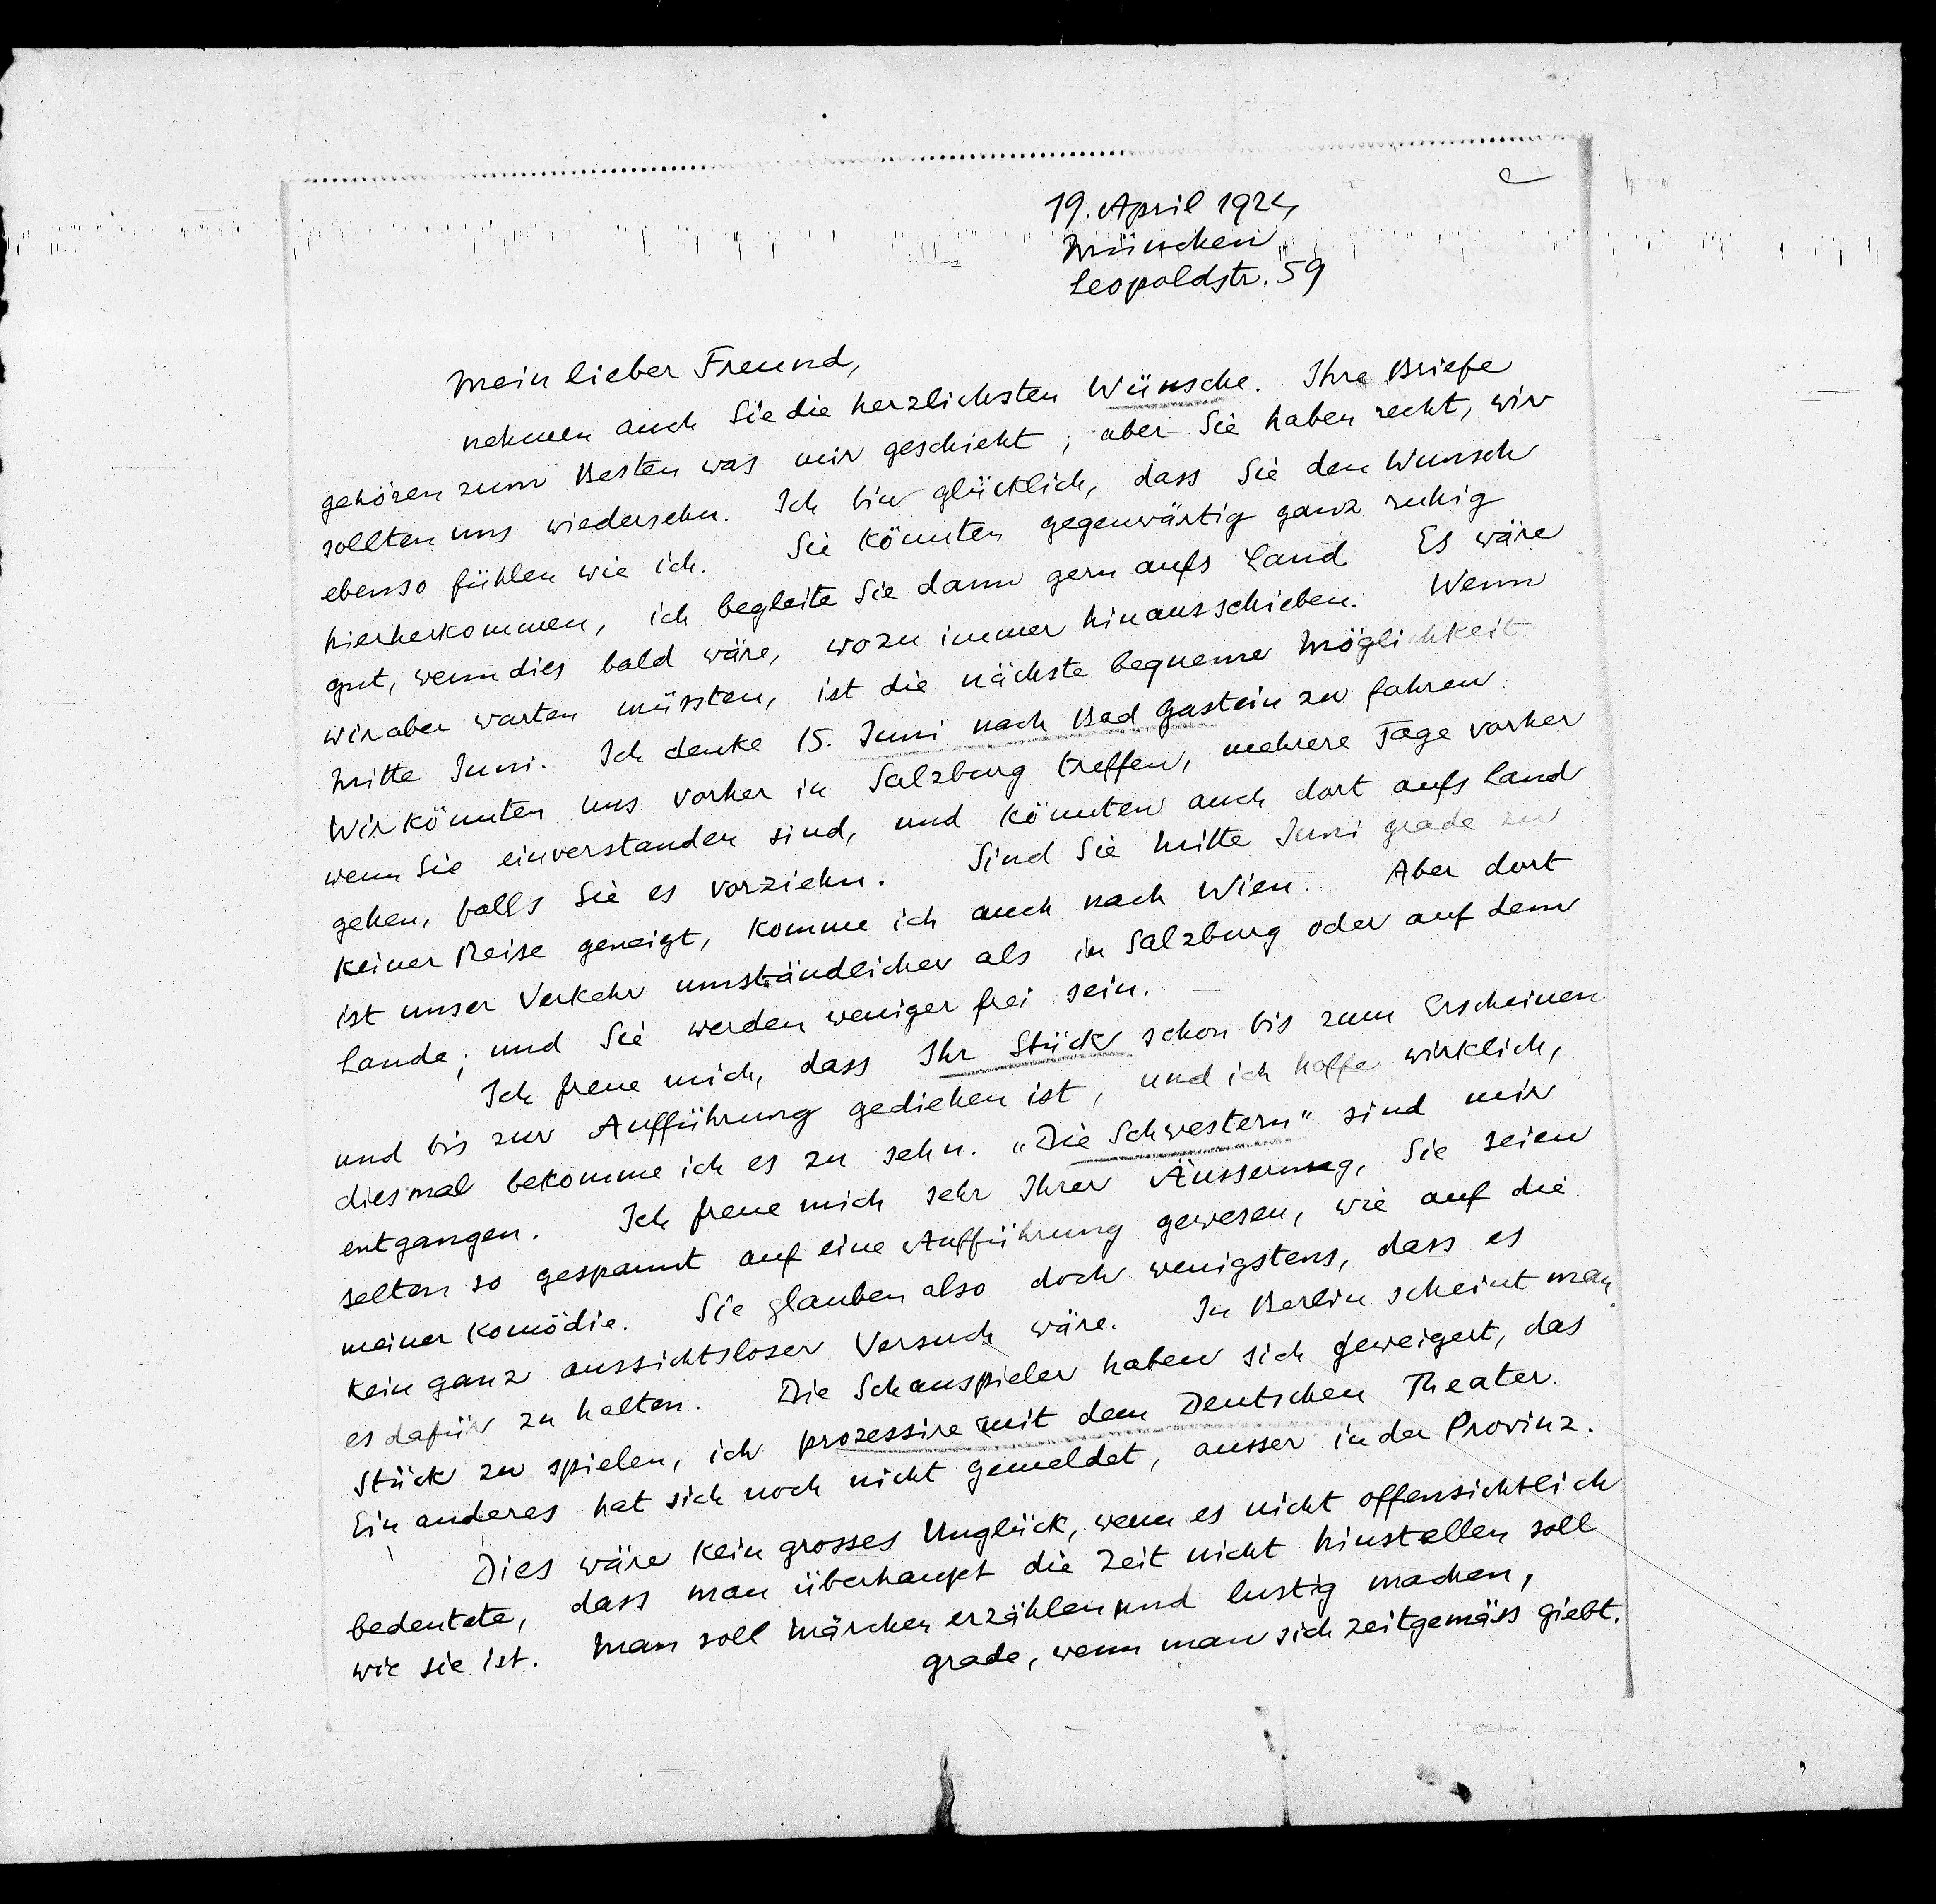 19. April 1924,
München
Leopoldstr. 59
Mein lieber Freund,
nehmen auch Sie die herzlichsten Wünsche. Ihre Briefe
gehören zum Besten was mir geschieht; aber Sie haben recht, wir
sollten uns wiedersehn. Ich bin glücklich, dass Sie den Wunsch
ebenso fühlen wie ich. Sie könnten gegenwärtig ganz ruhig
hierherkommen, ich begleite Sie dann gern aufs Land. Es wäre
gut, wenn dies bald wäre, wozu immer hinausschieben. Wenn
wir aber warten müssten, ist die nächste bequeme Möglichkeit
Mitte Juni. Ich denke 15. Juni nach Bad Gastein zu fahren.
Wir könnten uns vorher in Salzburg treffen, mehrere Tage vorher
wenn Sie einverstanden sind, und könnten auch dort aufs Land
gehen, falls Sie es vorziehn. Sind Sie Mitte Juni grade zu
keiner Reise geneigt, komme ich auch nach Wien. Aber dort
ist unser Verkehr umständlicher als in Salzburg oder auf dem
Lande; und Sie werden weniger frei sein.
Ich freue mich, dass Ihr Stück schon bis zum Erscheinen
und bis zur Aufführung gediehen ist, und ich hoffe wirklich,
diesmal bekomme ich es zu sehn. „Die Schwestern" sind mir
entgangen. Ich freue mich sehr Ihrer Äusserung, Sie seien
selten so gespannt auf eine Aufführung gewesen, wie auf die
meiner Komödie. Sie glauben also doch wenigstens, dass es
kein ganz aussichtsloser Versuch wäre. In Berlin scheint man
es dafür zu halten. Die Schauspieler haben sich geweigert, das
Stück zu spielen, ich prozessire mit dem Deutschen Theater.
Ein anderes hat sich noch nicht gemeldet, ausser in der Provinz.
Dies wäre kein grosses Unglück, wenn es nicht offensichtlich
bedeutete, dass man überhaupt die Zeit nicht hinstellen soll
wie sie ist. Man soll Märchen erzählen und lustig machen,
grade, wenn man sich zeitgemäss giebt.